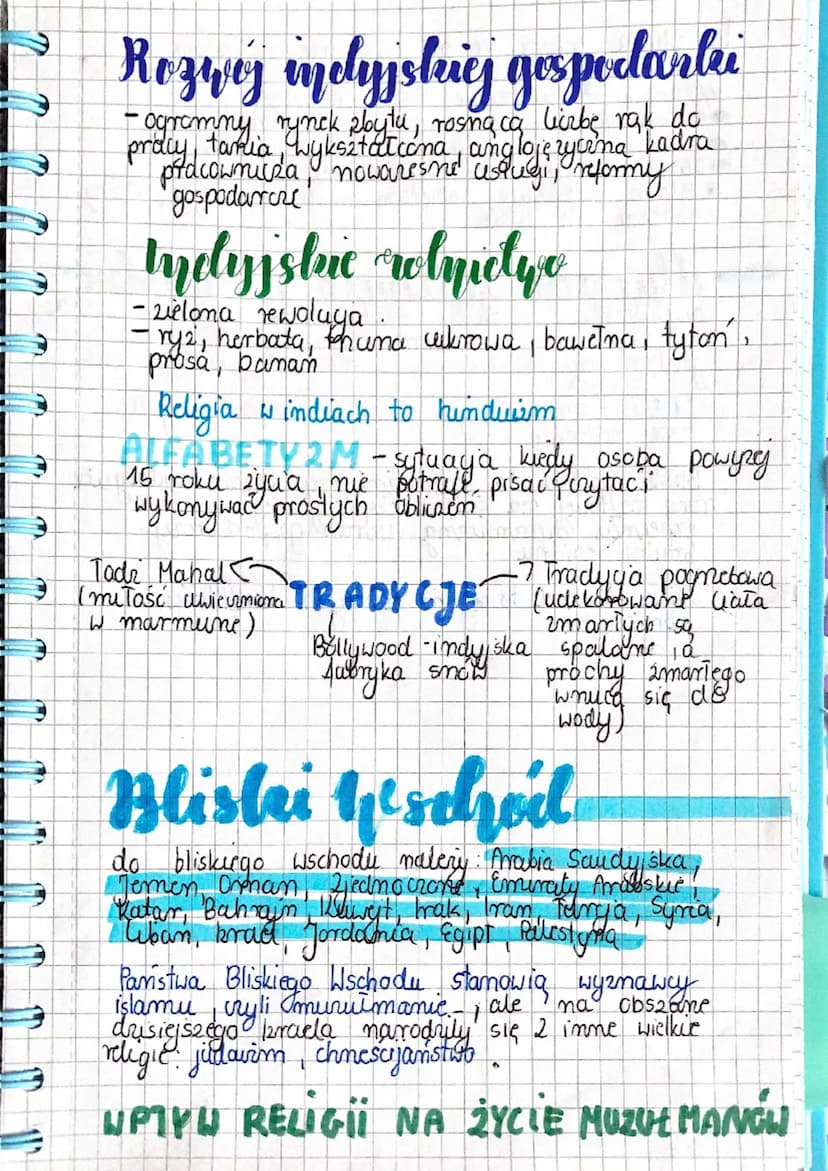 Rozwój indyjskiej gospodarki
- ogromny rynek zbytu, rosnącą liczbę rąk do
pracy, tania, wykształcona, anglojęzyczna kadra
pracownicza, nowoczesne usługi, reformy
gospodarcze
Indyjskie rolnictwo
- zielona rewolucja.
- ryż, herbata, trzcina cukrowa, bawełna, tytoń,
prosa, banan
Religia w indiach to hinduizm
ALFABETYZM - sytuacja kiedy osoba powyżej
15 roku życia nie potrafi pisać, czytać i
wykonywać prostych obliczeń.
Tadż Mahal
(miłość uwieczniona
w marmurze)
TRADYCJE
Bollywood - indyjska
fabryka snów
Tradycja pogrzebowa
(udekorowane ciała
zmarłych są
spalane, a
prochy zmarłego
wrzuca się do
wody)
Bliski Wschód
do bliskiego wschodu należy: Arabia Saudyjska,
Jemen, Oman, Zjednoczone, Emiraty Arabskie,
Katar, Bahrajn, Kuwejt, Irak, Iran, Turcja, Syria,
Liban, Izrael, Jordania, Egipt, Palestyna
Państwa Bliskiego Wschodu stanowią wyznawcy
islamu, czyli muzułmanie -, ale na obszarze
dzisiejszego Izraela narodziły się 2 inne wielkie
religie: judaizm, chrześcijaństwo.
WPŁYW RELIGII NA ŻYCIE MUZUŁMANÓW